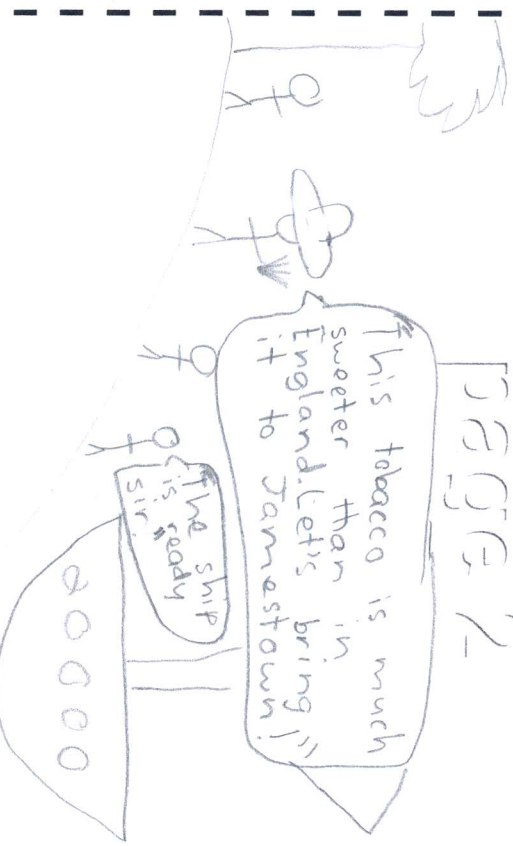 page 2
"This tobacco is much
sweeter than in
England. Let's bring
it to Jamestown!"
"The ship
is ready
sir"